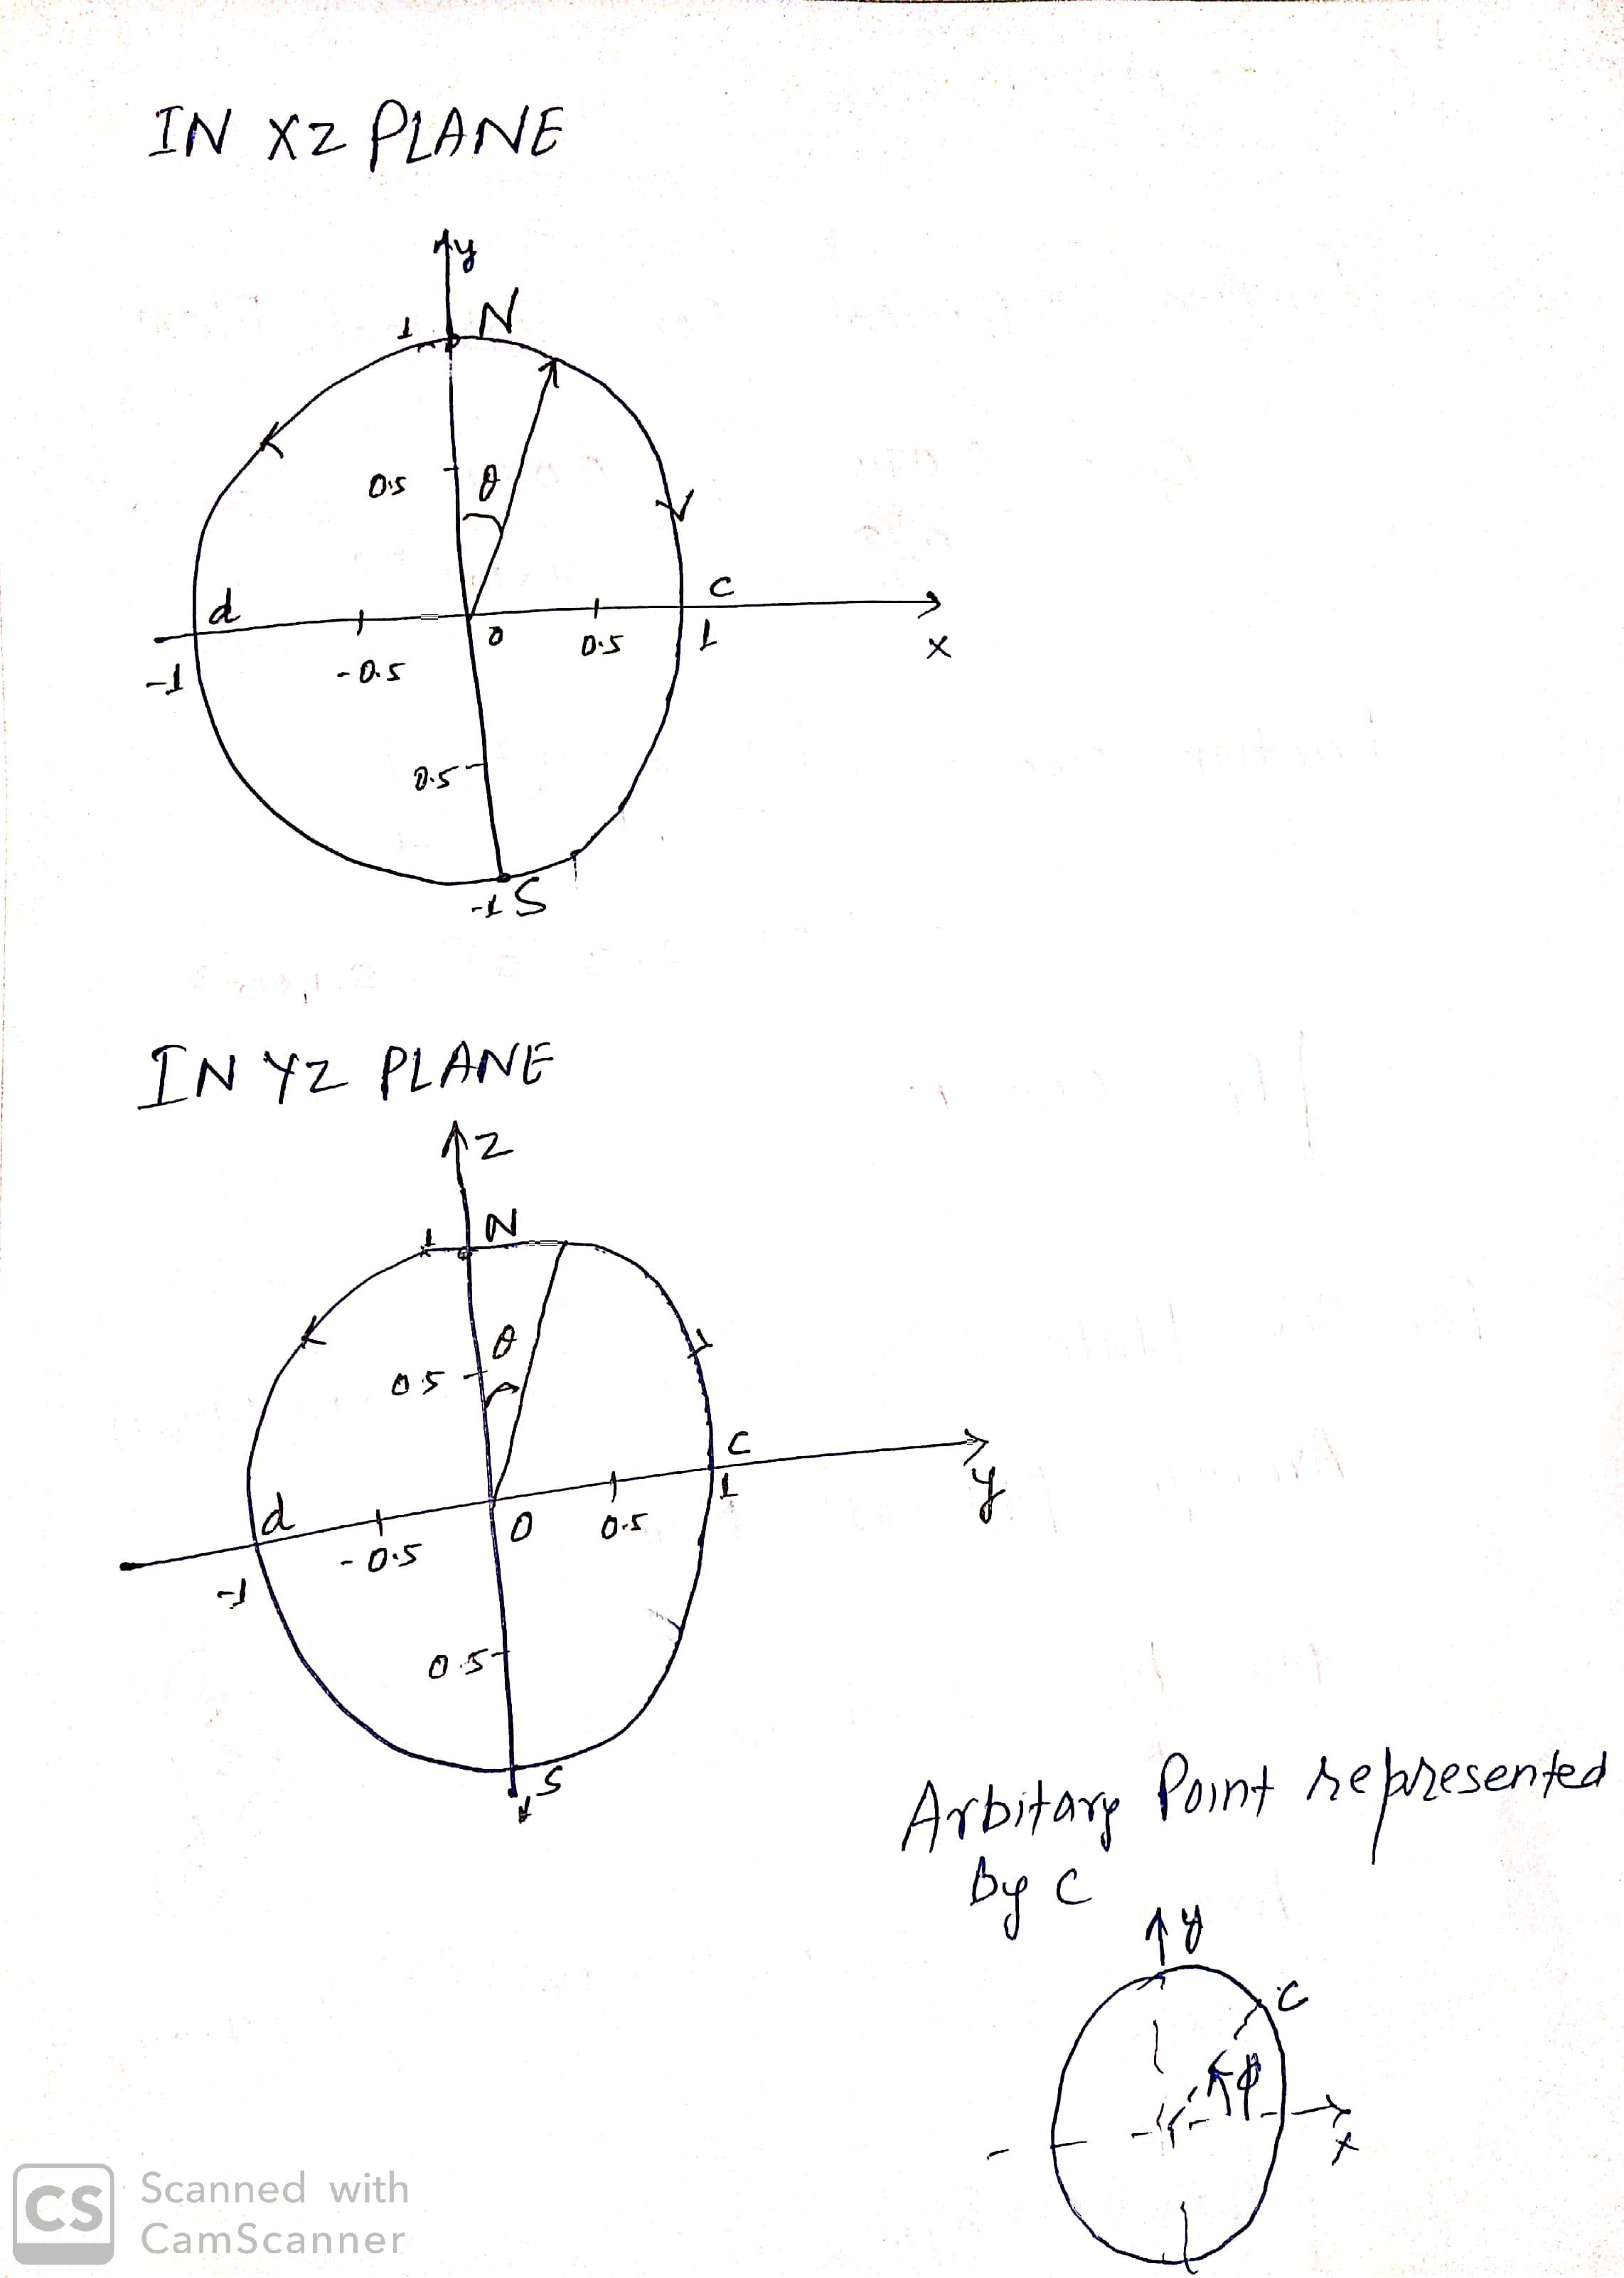 IN XZ PLANE
y
1 N
0.5 θ
d c
-1 -0.5 0 0.5 1 x
0.5
-1 S
IN YZ PLANE
Z
1 N
θ
0.5
c
d 0 0.5 1 y
-1 -0.5
0.5
S
Arbitary Point represented
by c
y
c
ϕ
x
CS Scanned with
CamScanner